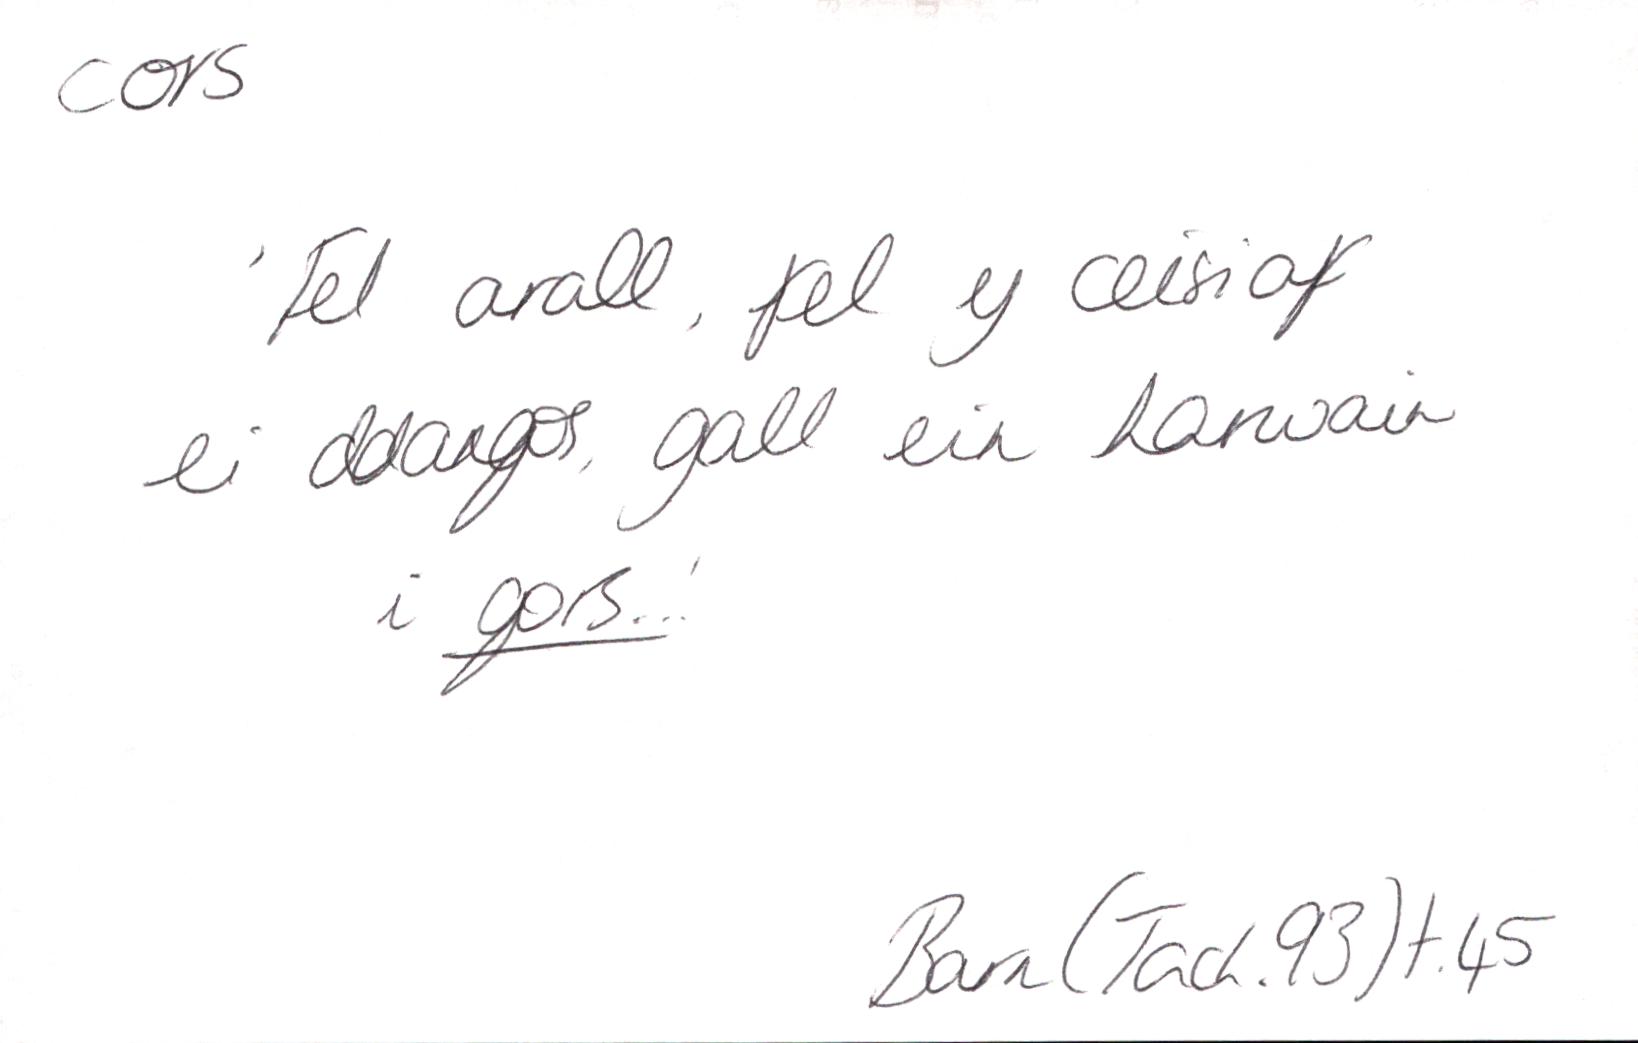 cors
'Fel arall, fel y ceisiaf
ei ddangos, gall ein harwain
i gors...'
Barn (Tach. 93) t.45